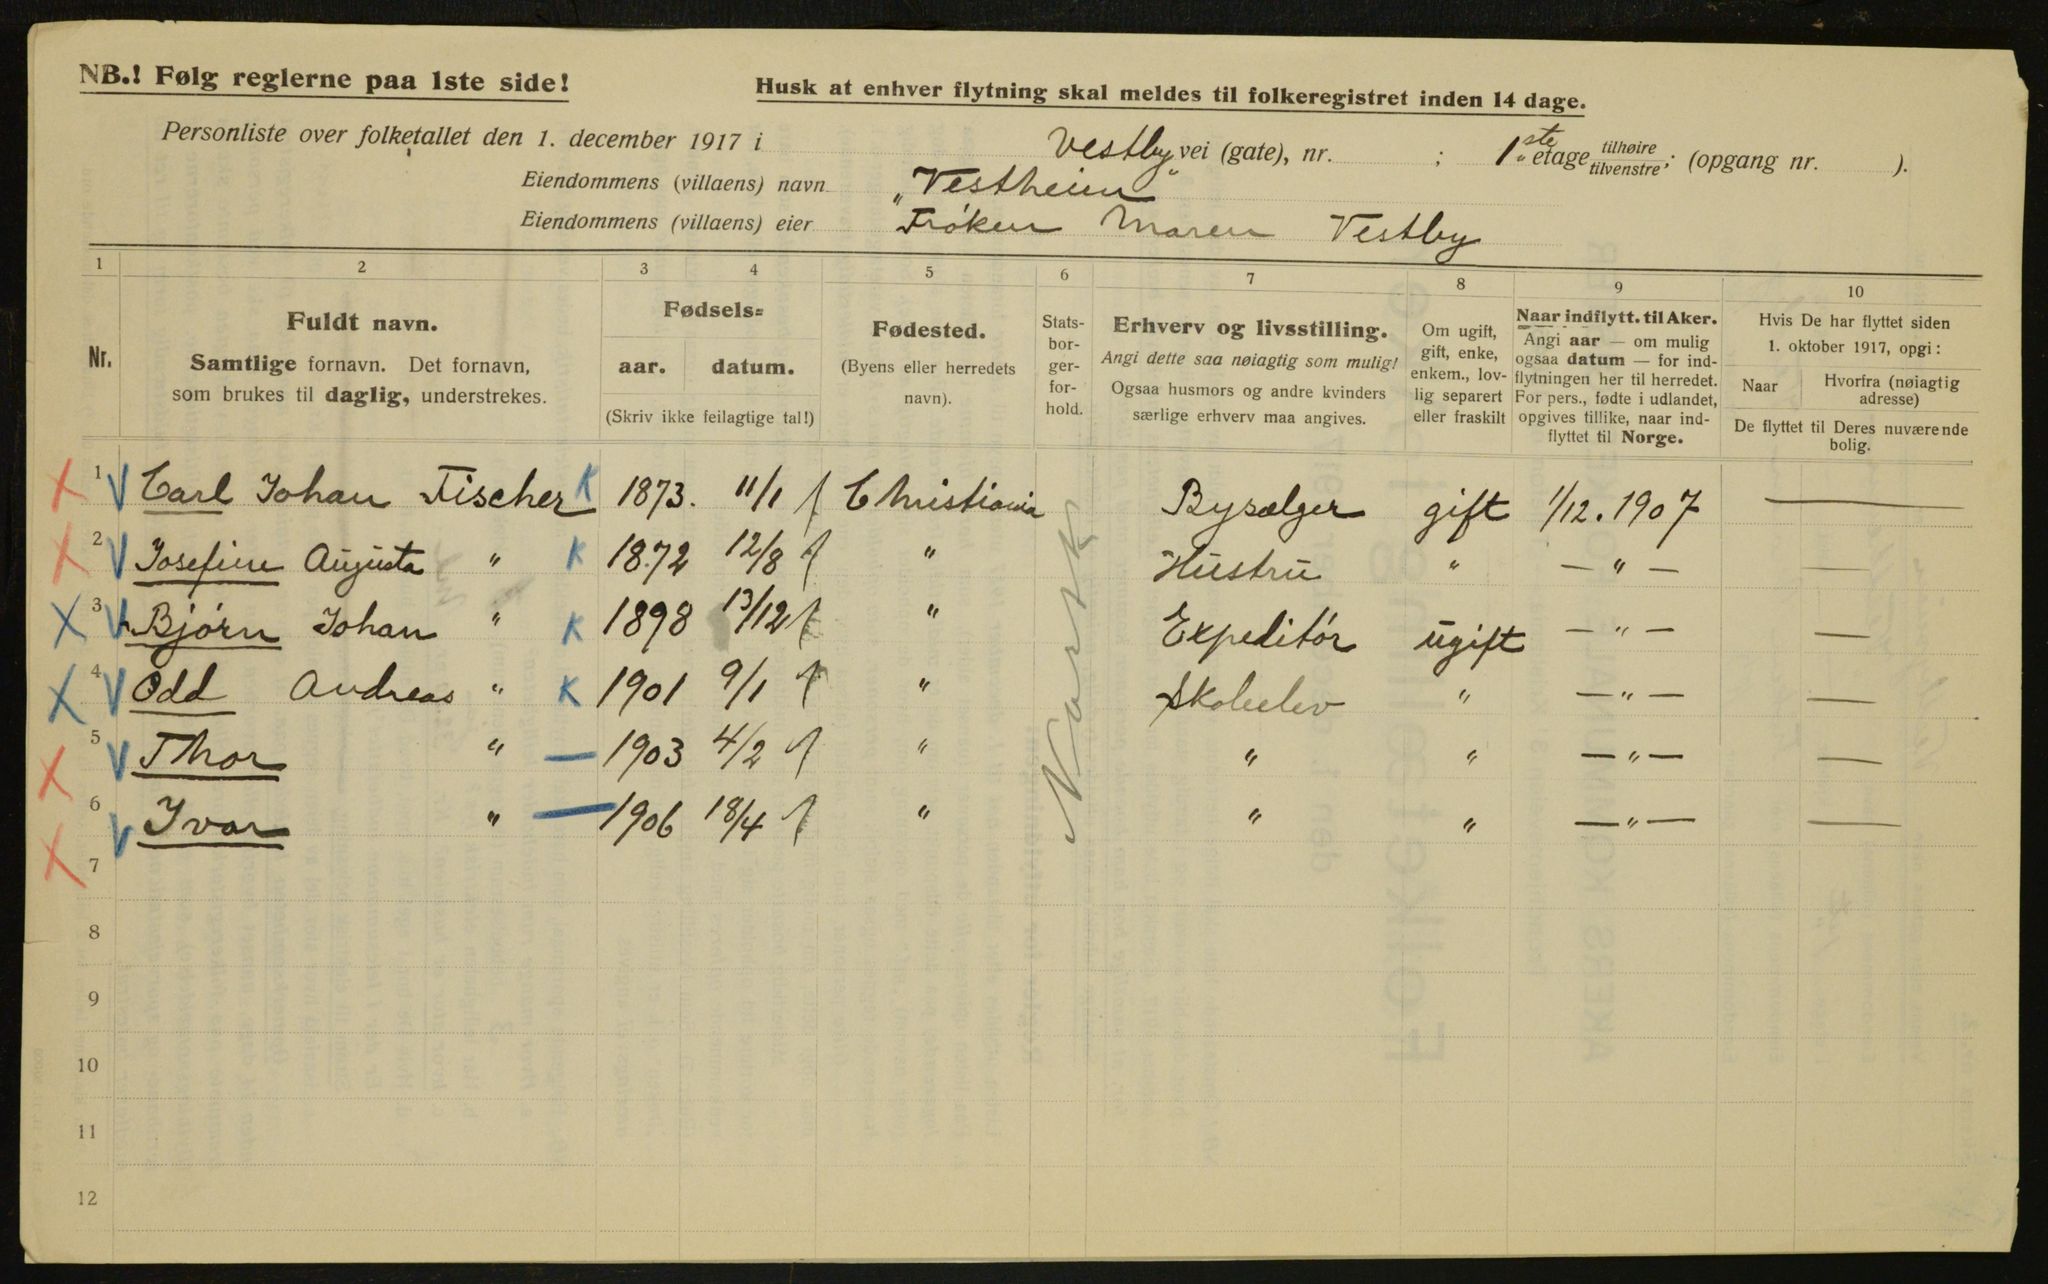 NB.! Følg reglerne paa 1ste side!
Husk at enhver flytning skal meldes til folkeregistret inden 14 dage.
Personliste over folketallet den 1. december 1917 i Vestby vei (gate), nr. ; 1ste etage tilhøire tilvenstre; (opgang nr. ).
Eiendommens (villaens) navn „Vestheim"
Eiendommens (villaens) eier Frøken Maren Vestby
1 2 3 4 5 6 7 8 9 10
Nr.
Fuldt navn.
Samtlige fornavn. Det fornavn,
som brukes til daglig, understrekes.
Fødsels=
aar. datum.
(Skriv ikke feilagtige tal!)
Fødested.
(Byens eller herredets
navn).
Stats-
bor-
ger-
for-
hold.
Erhverv og livsstilling.
Angi dette saa nøiagtig som mulig!
Ogsaa husmors og andre kvinders
særlige erhverv maa angives.
Om ugift,
gift, enke,
enkem., lov-
lig separert
eller fraskilt
Naar indflytt. til Aker.
Angi aar — om mulig
ogsaa datum — for ind-
flytningen her til herredet.
For pers., fødte i udlandet,
opgives tillike, naar ind-
flyttet til Norge.
Hvis De har flyttet siden
1. oktober 1917, opgi:
Naar Hvorfra (nøiagtig
adresse)
De flyttet til Deres nuværende
bolig.
1 Carl Johan Fischer K 1873. 11/1 Christiania Norsk Bysælger gift 1/12. 1907 —
2 Josefine Augusta " K 1872 12/8 " Hustru " — " — —
3 Bjørn Johan " K 1898 13/12 " Expeditør ugift — " — —
4 Odd Andreas " K 1901 9/1 " Skoleelev " — " — —
5 Thor " — 1903 4/2 " " " — " — —
6 Ivar " — 1906 18/4 " " " — " — —
7
8
9
10
11
12